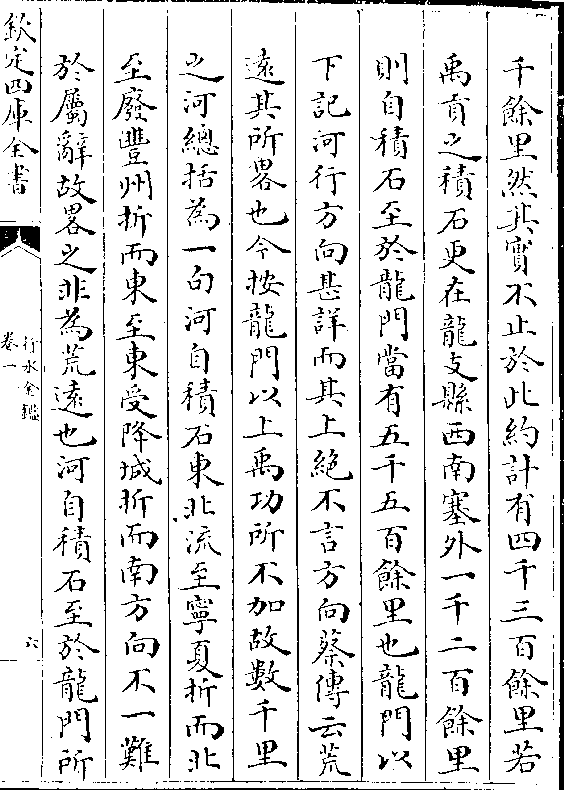 千餘里然其實不止於此約計有四千三百餘里若
禹貢之積石更在龍支縣西南塞外一千二百餘里
則自積石至於龍門當有五千五百餘里也龍門以
下記河行方向甚詳而其上絶不言方向蔡傳云荒
逺其所畧也今按龍門以上禹功所不加故數千里
之河總括為一句河自積石東北流至寧夏折而北
至廢豐州折而東至東受降城折而南方向不一難
於屬辭故畧之非為荒遠也河自積石至於龍門所
欽定四庫全書
行水金鑑
卷一
六